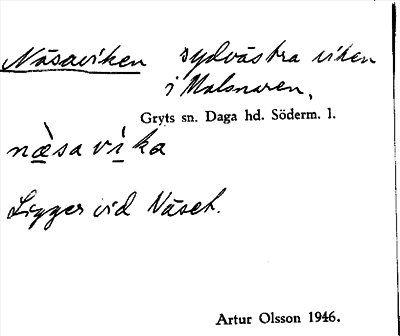 Näsaviken sydvästra viken
i Malsnaren,
Gryts sn. Daga hd. Söderm. l.
næ̀sa vi̲ka
Ligger vid Näset.
Artur Olsson 1946.